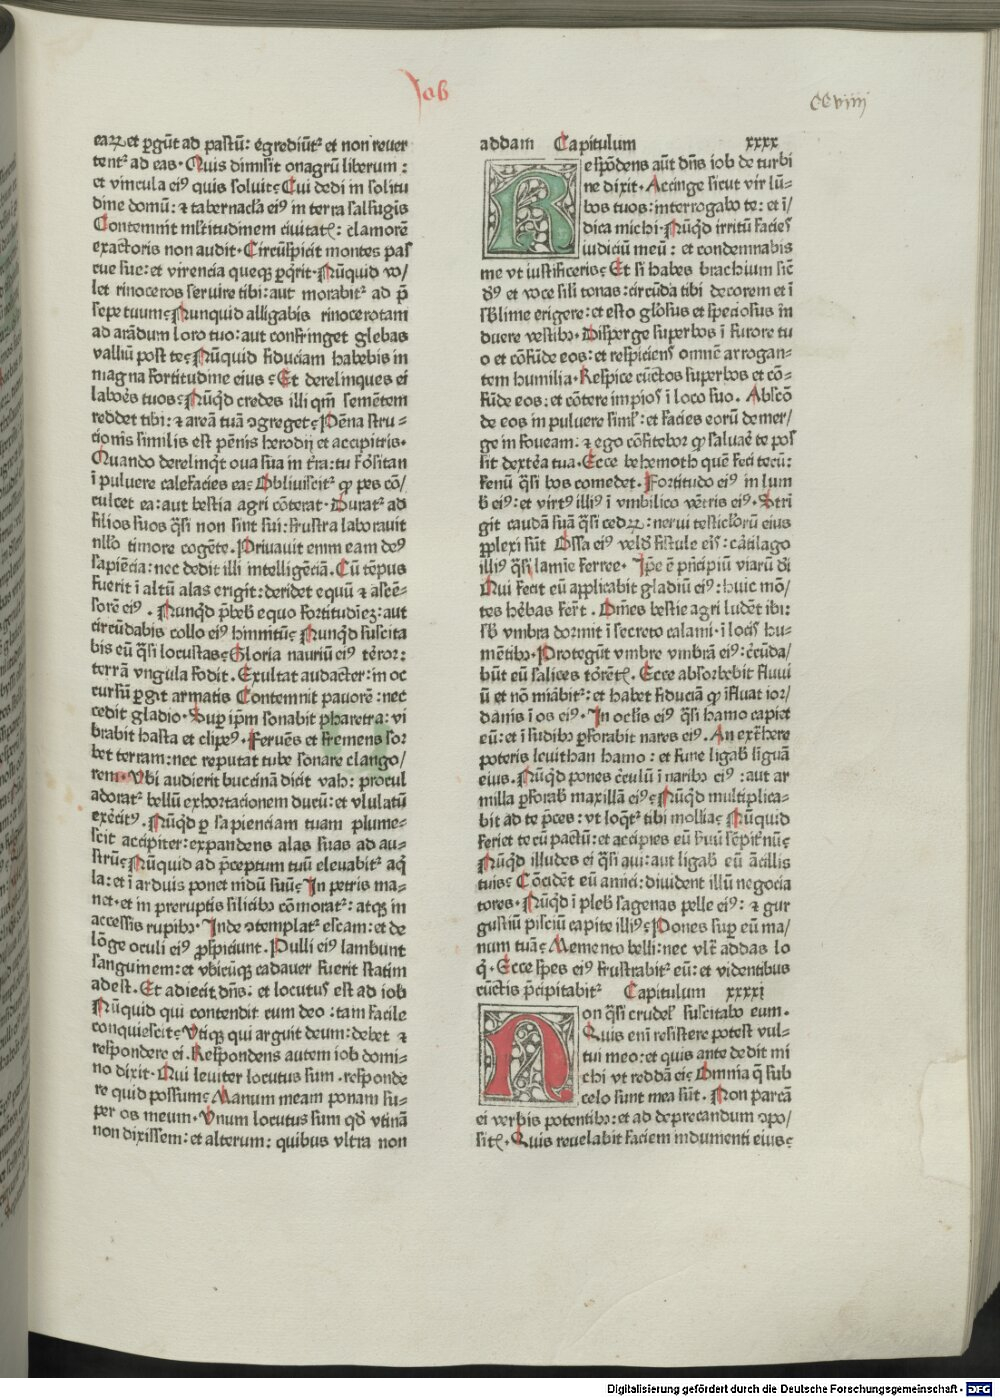 Job
CCviiii
eaꝝ et ꝑgūt ad pastū: egrediūtᷣ et non reuer
tentᷣ ad eas. Quis dimisit onagrū liberum:
et vincula eiꝰ quis soluit? Cui dedi in solitu
dine domū: ⁊ tabernac̄la eiꝰ in terra salsugīs
Contemnit mltitudinem ciuitatꝭ: clamorē
exactoris non audit. Circūspicit montes pas
cue sue: et virencia queqꝫ ꝑqͥrit. Nūquid vo/
let rinoceros seruire tibi: aut morabitᷣ ad p̄
sepe tuum? Nunquid alligabis rinocerotam
ad arādum loro tuo: aut confringet glebas
valliū post te? Nūquid fiduciam habebis in
magna fortitudine eius? Et derelinques ei
labores tuos? Nūqͥd credes illi qm̄ sementem
reddet tibi: ⁊ areā tuā ↄgreget? Penna stru-
cionis similis est pēnis herodij et accipitris.
Quando derelinqͥt oua sua in tr̄a: tu forsitan
ī puluere calefacies ea? Obliuiscitᷣ ꝙ pes cō/
culcet ea: aut bestia agri cōterat. Duratᷣ ad
filios suos qͣsi non sint sui: frustra laborauit
nll̓o timore cogēte. Priuauit enim eam deꝰ
sapiēcia: nec dedit illi intelligēciā. Cū tēpus
fuerit ī altū alas erigit: deridet equū ⁊ ascē-
sorē eiꝰ. Nunqͥd p̄beb̓ equo fortitudīeꝫ: aut
circūdabis collo eiꝰ hinnitū? Nunqͥd suscita
bis eū qͣsi locustas? Gloria nauriū eiꝰ terror:
terrā vngula fodit. Exultat audacter: in oc
cursū ꝑgit armatis Contemnit pauorē: nec
cedit gladio. Suꝑ ip̄m sonabit pharetra: vi
brabit hasta et clipeꝰ. Feruēs et fremens sor
bet terram: nec reputat tube sonare clango/
rem. Vbi audierit buccinā dicit vah: procul
adoratᷣ bellū exhortacionem ducū: et vlulatū
exercitꝰ. Nūqͥd ꝑ sapienciam tuam plume-
scit accipiter: expandens alas suas ad au-
strū? Nūquid ad p̄ceptum tuū eleuabitᷣ aqͥ
la: et ī arduis ponet nidū suū? In petris ma-
net. et in preruptis silicibꝰ cōmoratᷣ: atqꝫ in
accessis rupibꝰ. Inde ↄtemplatᷣ escam: et de
lōge oculi eiꝰ ꝓspiciunt. Pulli eiꝰ lambunt
sanguinem: et vbicūqꝫ cadauer fuerit statim
adest. Et adiecit dn̄s: et locutus est ad iob
Nūquid qui contendit cum deo: tam facile
conquiescit? Vtiqꝫ qui arguit deum: debet ⁊
respondere ei. Respondens autem iob domi-
no dixit. Qui leuiter locutus sum. responde
re quid possum? Manum meam ponam su-
per os meum. Vnum locutus sum qd̓ vtinā
non dixissem: et alterum: quibus vltra non
addam Capitulum xxxx
Respōdens aūt dn̄s iob de turbi
ne dixit. Accinge sicut vir lū-
bos tuos: interrogabo te: et ī/
dica michi. Nūqͥd irritū facies
iudiciū meū: et condemnabis
me vt iustificeris? Et si habes brachium sic̄
dꝰ et voce sil̓i tonas: circūda tibi decorem et ī
sb̓lime erigere: et esto gl̓osus et speciosus in
duere vestibꝰ. Disperge superbos ī furore tu
o et cōfūde eos: et respiciens omnē arrogan-
tem humilia. Respice cūctos superbos et cō-
fūde eos: et cōtere impios ī loco suo. Abscō
de eos in puluere siml̓: et facies eorū demer/
ge in foueam: ⁊ ego cōfiteborᷣ ꝙ saluare te pos
sit dextera tua. Ecce behemoth quē feci tecū:
fenū qͣsi bos comedet. Fortitudo eiꝰ in lum
b̓ eiꝰ: et virtꝰ illiꝰ ī vmbilico ventris eiꝰ. Stri
git caudā suā qͣsi cedꝝ: nerui testicl̓orū eius
ꝑplexi sūt Ossa eiꝰ velud̓ fistule eris: cartilago
illiꝰ qͣsi lamīe ferree. Ip̄e ē pͥncipiū viarū d̄i
Qui fecit eū applicabit gladiū eiꝰ: huic mō/
tes herbas ferūt. Omēs bestie agri ludēt ibi:
sb̓ vmbra dormit ī secreto calami. ī locis hu-
mētibꝰ. Protegūt vmbre vmbrā eiꝰ: circūda/
būt eū salices torētꝭ. Ecce absorbebit fluui
ū et nō mirabitᷣ: et habet fiduciā ꝙ īfluat ior/
danis ī os eiꝰ. In ocl̓is eiꝰ qͣsi hamo capiet
eū: et ī sudibꝰ ꝑforabit nares eiꝰ. An extrahere
poteris leuithan hamo: et fune ligab̓ līguā
eius. Nūqͥd pones circulū ī naribꝰ eiꝰ: aut ar
milla ꝑforab̓ maxillā eiꝰ? Nūqͥd multiplica-
bit ad te preces: vt loqͥtᷣ tibi mollia? Nūquid
feriet tecū pactū: et accipies eū seruū sempitᷣnū?
Nūqͥd illudes ei qͣsi aui: aut ligab̓ eū ancillis
tuis? Cōcident eū amici: diuident illū negocia
tores. Nūqͥd ī pleb̓ sagenas pelle eiꝰ: ⁊ gur
gustiū pisciū capite illiꝰ? Pones suꝑ eū ma/
num tuā? Memento belli: nec vltᷣ addas lo
qͥ. Ecce spes eiꝰ frustrabitᷣ eū: et videntibus
cūctis p̄cipitabitᷣ Capitulum xxxxi
Non qͣsi crudel̓ suscitabo eum.
Quis enī resistere potest vul-
tui meo: et quis ante dedit mi
chi vt reddā ei? Omnia q̄ sub
celo sunt mea sūt. Non parcā
ei verbis potentibꝰ: et ad deprecandum ↄpo/
sitꝭ. Quis reuelabit faciem indumenti eius?
Digitalisierung gefördert durch die Deutsche Forschungsgemeinschaft - DFG